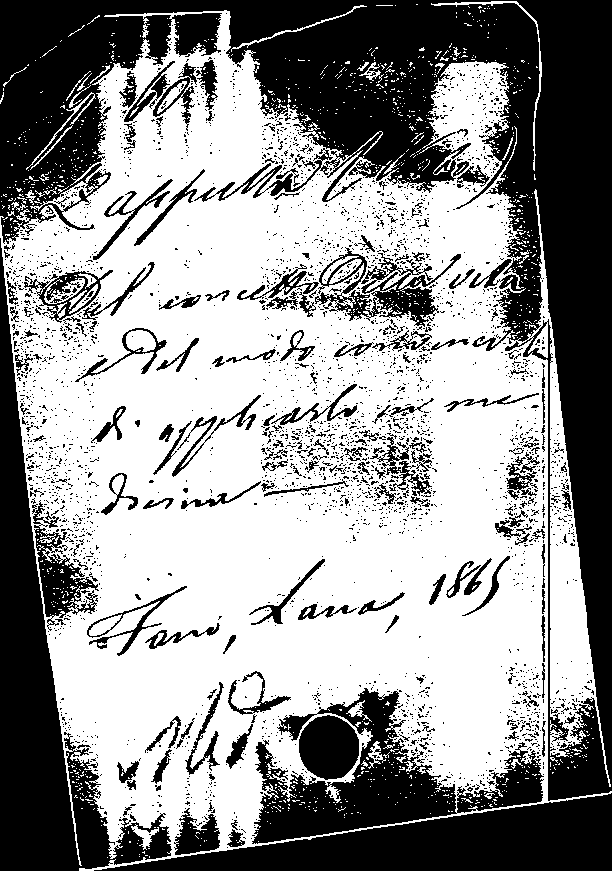 60
Zappulla (
Del concetto della vita
e del modo convenevole
di applicarlo in me-
dicina. —
Fano, Lana, 1865
Med